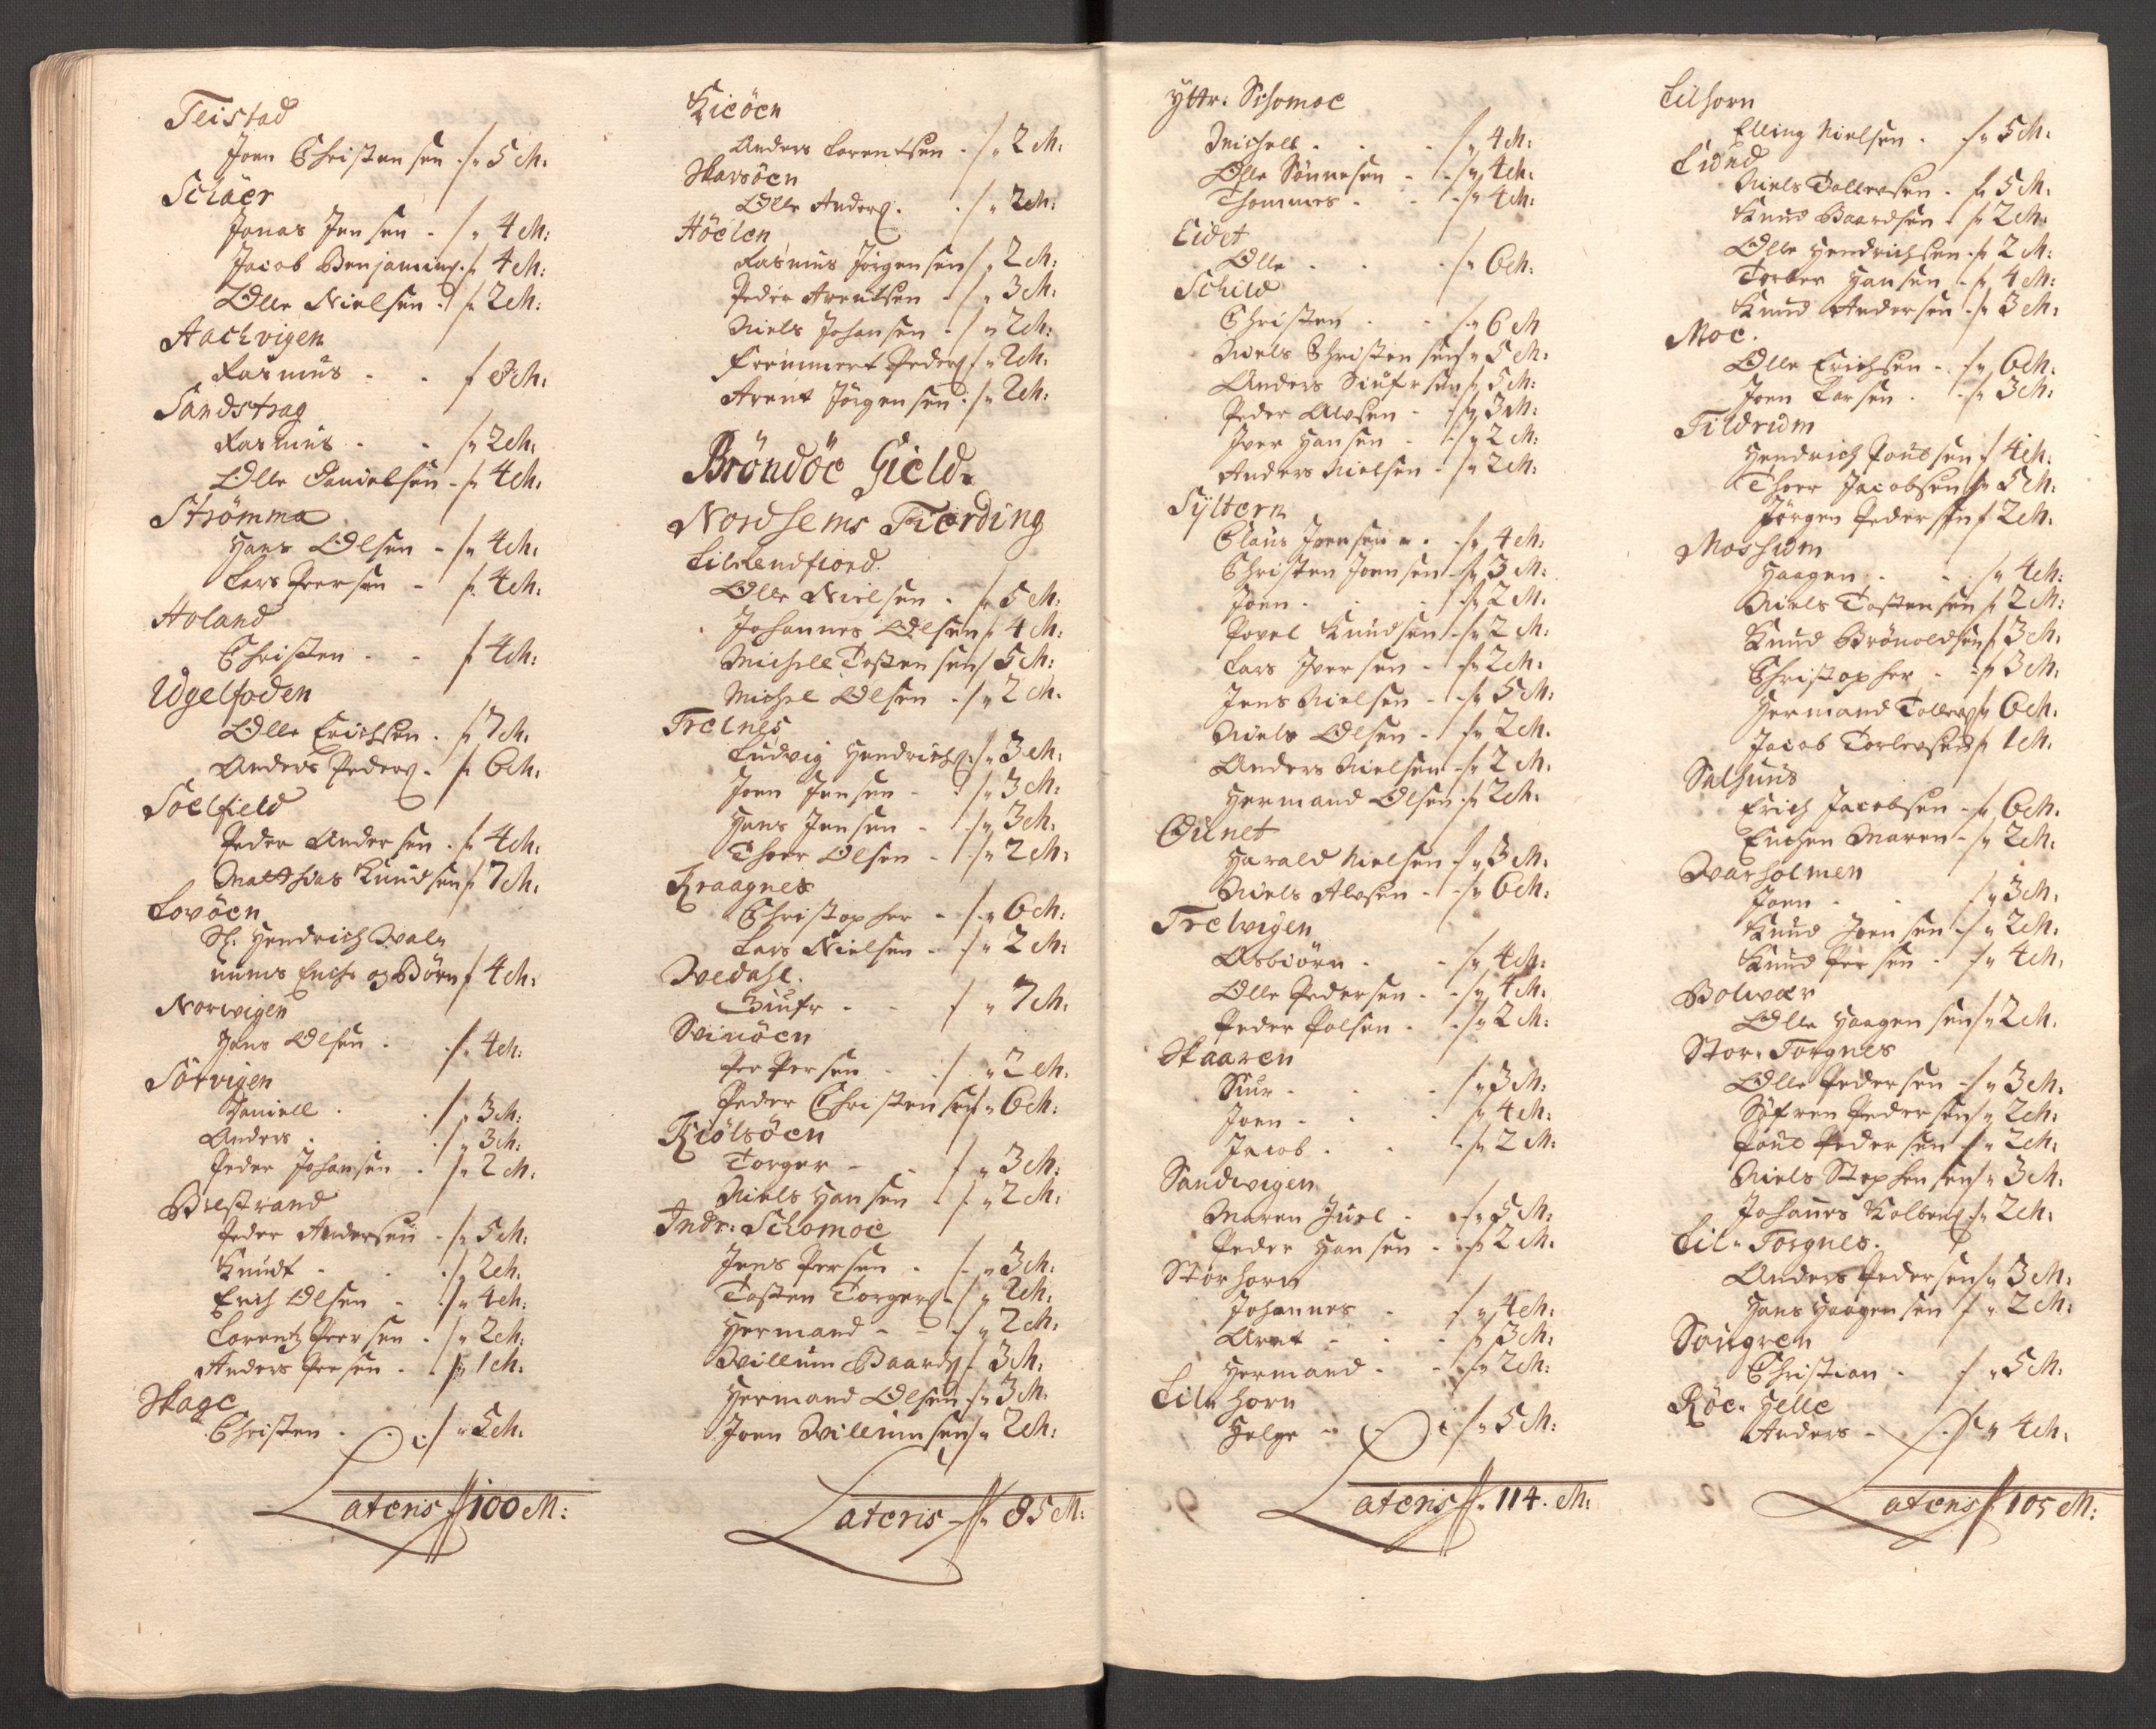 Teistad
Joen Christensen - 5 M:
Schäer
Jonas Jensen - 4 M:
Jacob Benjamins. 4 M:
Olle Nielsen - 2 M:
Aachvigen
Rasmus - - 8 M:
Sandstrag
Rasmus - - 2 M:
Olle Danielsen - 4 M:
Strömma
Hans Olsen - 4 M:
Lars Peersen - 4 M:
Holand
Christen - - 4 M:
Ugelfoden
Olle Erichsen - 7 M:
Anders Peders. - 6 M:
Soelfield
Peder Andersen - 4 M:
Matthias Knudsen 7 M:
Lovöen
Sl. Hendrich
Encke og Börn 4 M:
Norvigen
Hans Olsen - 4 M:
Sörvigen
Daniell - 3 M:
Anders - 3 M:
Peder Johansen - 2 M:
Brestrand
Peder Andersen - 5 M:
Knudt - - 2 M:
Erich Olsen - 4 M:
Lorentz Peersen - 2 M:
Anders Persen - 1 M:
Skage
Christen - - 5 M:
Lateris 100 M:
Kieöen
Anders Lorentsen - 2 M:
Skarsöen
Olle Anders. - 2 M:
Höelen
Rasmus Jörgensen 2 M:
Peder Arentsen - 3 M:
Niels Johansen - 2 M:
Frommert Peders. 2 M:
Arent Jörgensen - 2 M:
Bröndöe Gield.
Nordhems Fierding
Lilkendfiord.
Olle Nielsen - 5 M:
Johannes Olsen 4 M:
Michell Tostensen 5 M:
Michel Olsen - 2 M:
Trelnes
Ludvig Hendrichs. 3 M:
Joen Jensen - 3 M:
Hans Jensen - 3 M:
Thoer Olsen - 2 M:
Kraagnes
Christopher - 6 M:
Lars Nielsen - 2 M:
Wedahl.
Siufr - - 7 M:
Svinöen
Per Persen - 2 M:
Peder Christensen 6 M:
Kiölsöen
Torger - - 3 M:
Niels Hansen - 2 M:
Indr: Schomoe
Jens Persen - 3 M:
Tosten Torgers. - 2 M:
Hermand - - 2 M:
Willum Baards. 3 M:
Hermand Olsen - 3 M:
Joen Willumsen 2 M:
Lateris 85 M:
Yttr: Schomoe
Michell - - 4 M:
Olle Sönnesen - 4 M:
Thommes - - 4 M:
Eidet
Olle - - 6 M:
Schild
Christen - - 6 M
Niels Christensen 5 M:
Anders Siufrsen 5 M:
Peder Alvsen - 3 M:
Iver Hansen - 2 M:
Anders Nielsen - 2 M:
Syltern
Claus Joensen - 4 M:
Christen Joensen - 3 M:
Joen - - 2 M:
Povel Knudsen - 2 M:
Lars Iversen - 2 M:
Jens Nielsen - 5 M:
Niels Olsen - 2 M:
Anders Nielsen - 2 M:
Hermand Olsen - 2 M:
Ounet
Harald Nielsen - 3 M:
Niels Alvsen - 6 M:
Trelvigen
Asbiörn - - 4 M:
Olle Pedersen - 4 M:
Peder Polsen - 2 M:
Skaaren
Siur - - 3 M:
Joen - - 4 M:
Jacob - - 2 M:
Sandvigen
Maren Juel - 5 M:
Peder Hansen - 2 M:
Storhorn
Johannes - 4 M:
Arnt - - 3 M:
Hermand - - 2 M:
Lil. horn
Helge - - 5 M:
Lateris 114. M:
Lilhorn
Elling Nielsen - 5 M:
Eidud
Niels Tollersen - 5 M:
Knud Baardsen - 2 M:
Olle Hendrichsen - 2 M:
Torber Hansen - 4 M:
Knud Andersen - 3 M:
Moe.
Olle Erichsen - 6 M:
Joen Larsen - 3 M:
Tildrum
Hendrich Poulsen - 4 M:
Thoer Jacobsen 5 M:
Jörgen Pedersen 2 M:
Moshum
Haagen - - 4 M:
Niels Tostensen 2 M:
Knud Brönoldsen 3 M:
Christopher - 3 M:
Hermand Tollers. 6 M:
Jacob Torlersen 1 M:
Salhuus
Erich Jacobsen - 6 M:
Enchen Maren - 2 M:
Warholmen
Joen - - 3 M:
Knud Joensen - 2 M:
Knud Persen - 4 M:
Bolvær
Olle Haagensen 2 M:
Stor. Torgnes
Olle Pedersen - 3 M:
Söfren Pedersen 2 M:
Poul Pedersen - 2 M:
Niels Stephensen 3 M:
Johannes Kolbens. 2 M:
Lil. Torgnes.
Anders Pedersen 3 M:
Hans Haagensen 2 M:
Sougren
Christian - 5 M:
Röe. Helle
Anders - - 4 M:
Lateris 105 M: